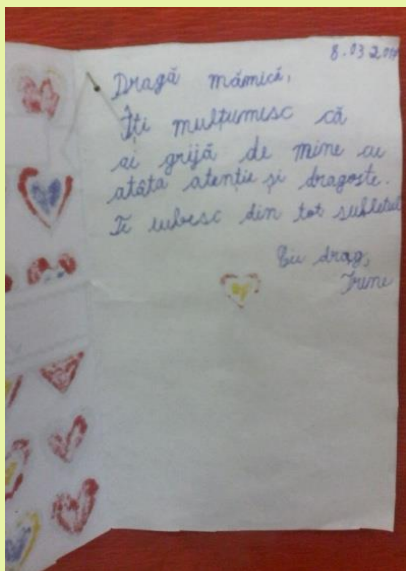 8.03.20
Dragă mămică,
Îți mulțumesc că
ai grijă de mine cu
atâta atenție și dragoste.
Te iubesc din tot sufletul
Cu drag,
Irene